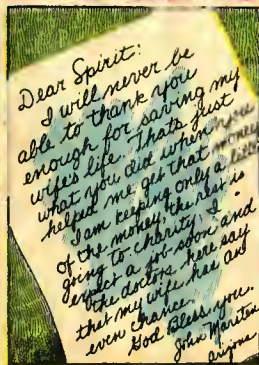 Dear Spirit:
I will never be
able to thank you
enough for saving my
wife's life. Thats just
what you did when you
helped me get that money
I am keeping only a little
of the money, the rest is
going to charity. I
expect a job soon and
the doctors here say
that my wife has an
even chance.
God Bless you.
John Marsten